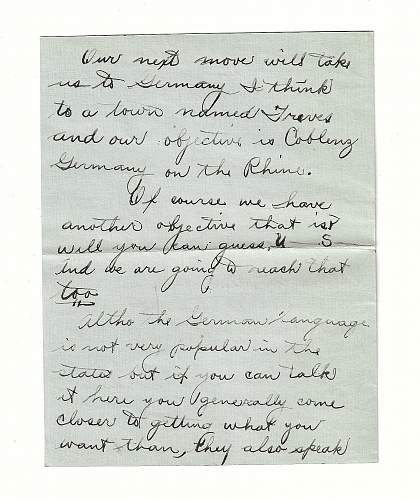 Our next move will take
us to Germany I think
to a town named Treves
and our objective is Coblenz
Germany on the Rhine.
Of course we have
another objective that is?
will you can guess, U S
and we are going to reach that
too
Altho the German language
is not very popular in the
states but if you can talk
it here you generally come
closer to getting what you
want than, they also speak